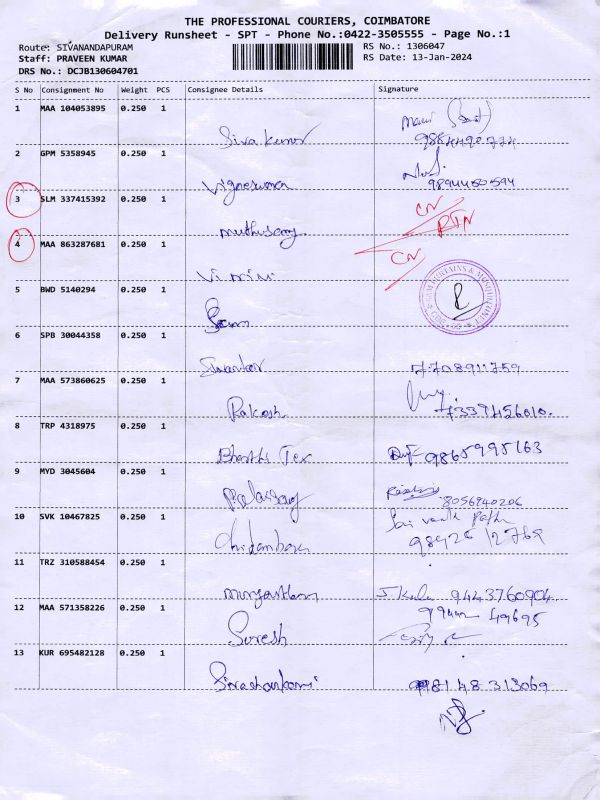 THE PROFESSIONAL COURIERS, COIMBATORE
Delivery Runsheet - SPT - Phone No.:0422-3505555 - Page No.:1
Route: SIVANANDAPURAM RS No.: 1306047
Staff: PRAVEEN KUMAR RS Date: 13-Jan-2024
DRS No.: DCJB130604701
S No Consignment No Weight PCS Consignee Details Signature
1 MAA 104053895 0.250 1
Siva kumar
2 GPM 5358945 0.250 1
Vigneswaran 9894450594
3 SLM 337415392 0.250 1 CN
muthusamy RTN
4 MAA 863287681 0.250 1 CN
5 BWD 5140294 0.250 1
6 SPB 30044358 0.250 1
7708911759
7 MAA 573860625 0.250 1
Rakesh 7339456010.
8 TRP 4318975 0.250 1
Bharathi Tex 9865995163
9 MYD 3045604 0.250 1
8056940206
10 SVK 10467825 0.250 1
Chidambaram 98426 12769
11 TRZ 310588454 0.250 1
9443760904
12 MAA 571358226 0.250 1 99442 49695
Suresh
13 KUR 695482128 0.250 1
98148313069